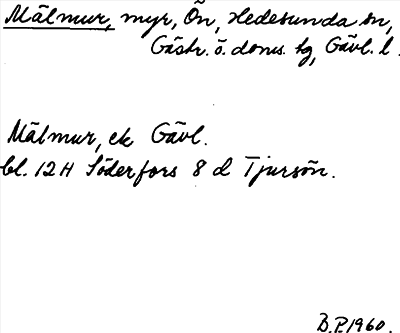 Mälmur, myr, Ön, Hedesunda sn,
Gästr. ö. doms. tg, Gävl. l.
Mälmur, ek Gävl.
bl. 12H Söderfors 8 d Tjursön.
B.P. 1960.